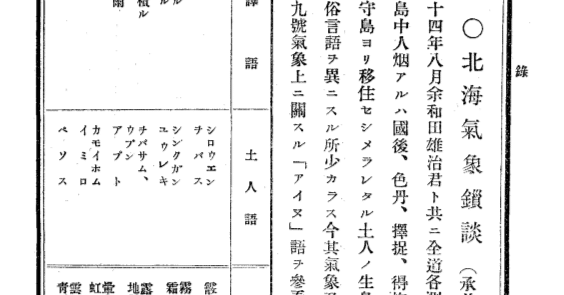 錄
○北海氣象鎖談（承
十四年八月余和田雄治君ト共ニ全道各
島中人烟アルハ國後、色丹、擇捉、得
守島ヨリ移住セシメラレタル土人ノ生
俗言語ヲ異ニスル所少カラス今其氣象
九號氣象上ニ關スル「アイヌ」語ヲ參
語
土人語
ル
積ル
シロウエン
チバス
シンクガン
ユウレキ
チパサム、
ウプン
アプト
カモイホム
イミロ
ペソス
霧
霜
露
地
暈
虹
雲
青